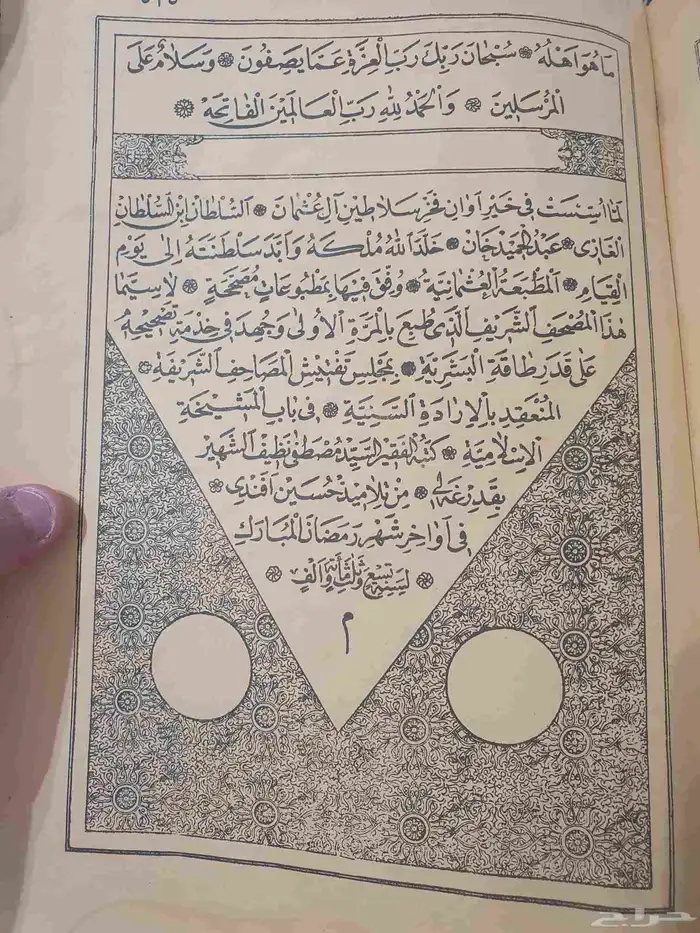 مَا هُوَ اَهْلُهُ ❁ سُبْحَانَ رَبِّكَ رَبِّ الْعِزَّةِ عَمَّا يَصِفُونَ ❁ وَسَلَامٌ عَلَى
الْمُرْسَلِينَ ❁ وَالْحَمْدُ لِلّٰهِ رَبِّ الْعَالَمِينَ الْفَاتِحَه ❁
لَمَّا اُسِّسَتْ فِى خَيْرِ اَوَانِ فَخْرِ سَلَاطِينِ آلِ عُثْمَانَ ❁ اَلسُّلْطَانِ ابْنِ السُّلْطَانِ
الْغَازِى ❁ عَبْدُ الْحَمِيدْ خَانْ ❁ خَلَّدَ اللهُ مُلْكَهُ وَاَبَّدَ سَلْطَنَتَهُ اِلٰى يَوْمِ
الْقِيَامِ ❁ اَلْمَطْبَعَةُ الْعُثْمَانِيَّةُ ❁ وُفِّقَ فِيهَا بِمَطْبُوعَاتٍ مُصَحَّحَةٍ ❁ لَاسِيَّمَا
هٰذَا الْمُصْحَفِ الشَّرِيفِ الَّذِى طُبِعَ بِالْمَرَّةِ الْاُولٰى وَجُهِدَ فِى خِدْمَةِ تَصْحِيحِهِ
عَلٰى قَدَرِ طَاقَةِ الْبَشَرِيَّةِ ❁ بِمَجْلِسِ تَفْتِيشِ الْمَصَاحِفِ الشَّرِيفَةِ ❁
الْمُنْعَقِدِ بِالْاِرَادَةِ السَّنِيَّةِ ❁ فِى بَابِ الْمَشِيخَةِ
الْاِسْلَامِيَّةِ ❁ كَتَبَهُ الْفَقِيرُ السَّيِّدْ مُصْطَفٰى نَظِيفُ الشَّهِيرُ
بِقَدِرْغَه لِى ❁ مِنْ تَلَامِيذِ حُسَيْنِ اَفَنْدِى ❁
فِى اَوَاخِرِ شَهْرِ رَمَضَانَ الْمُبَارَكِ
❁ لِسَنَةِ تِسْعٍ وَثَلٰثِمِائَةٍ وَاَلْفٍ ❁
م
حراج